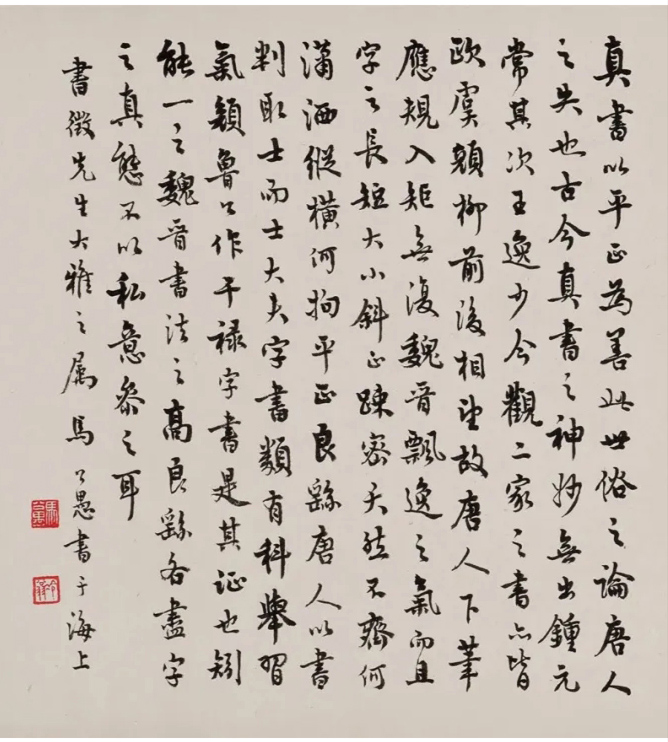 真書以平正為善此世俗之論唐人
之失也古今真書之神妙無出鍾元
常其次王逸少今觀二家之書亦皆
歐虞顏柳前後相望故唐人下筆
應規入矩無復魏晉飄逸之氣而且
字之長短大小斜正踈密天然不齊何
瀟洒縱橫何拘平正良繇唐人以書
判取士而士大夫字書類有科舉習
氣顏魯公作干祿字書是其证也矧
能一之魏晉書法之高良繇各盡字
之真態不以私意參之耳
書徵先生大雅之属馬公愚書于海上